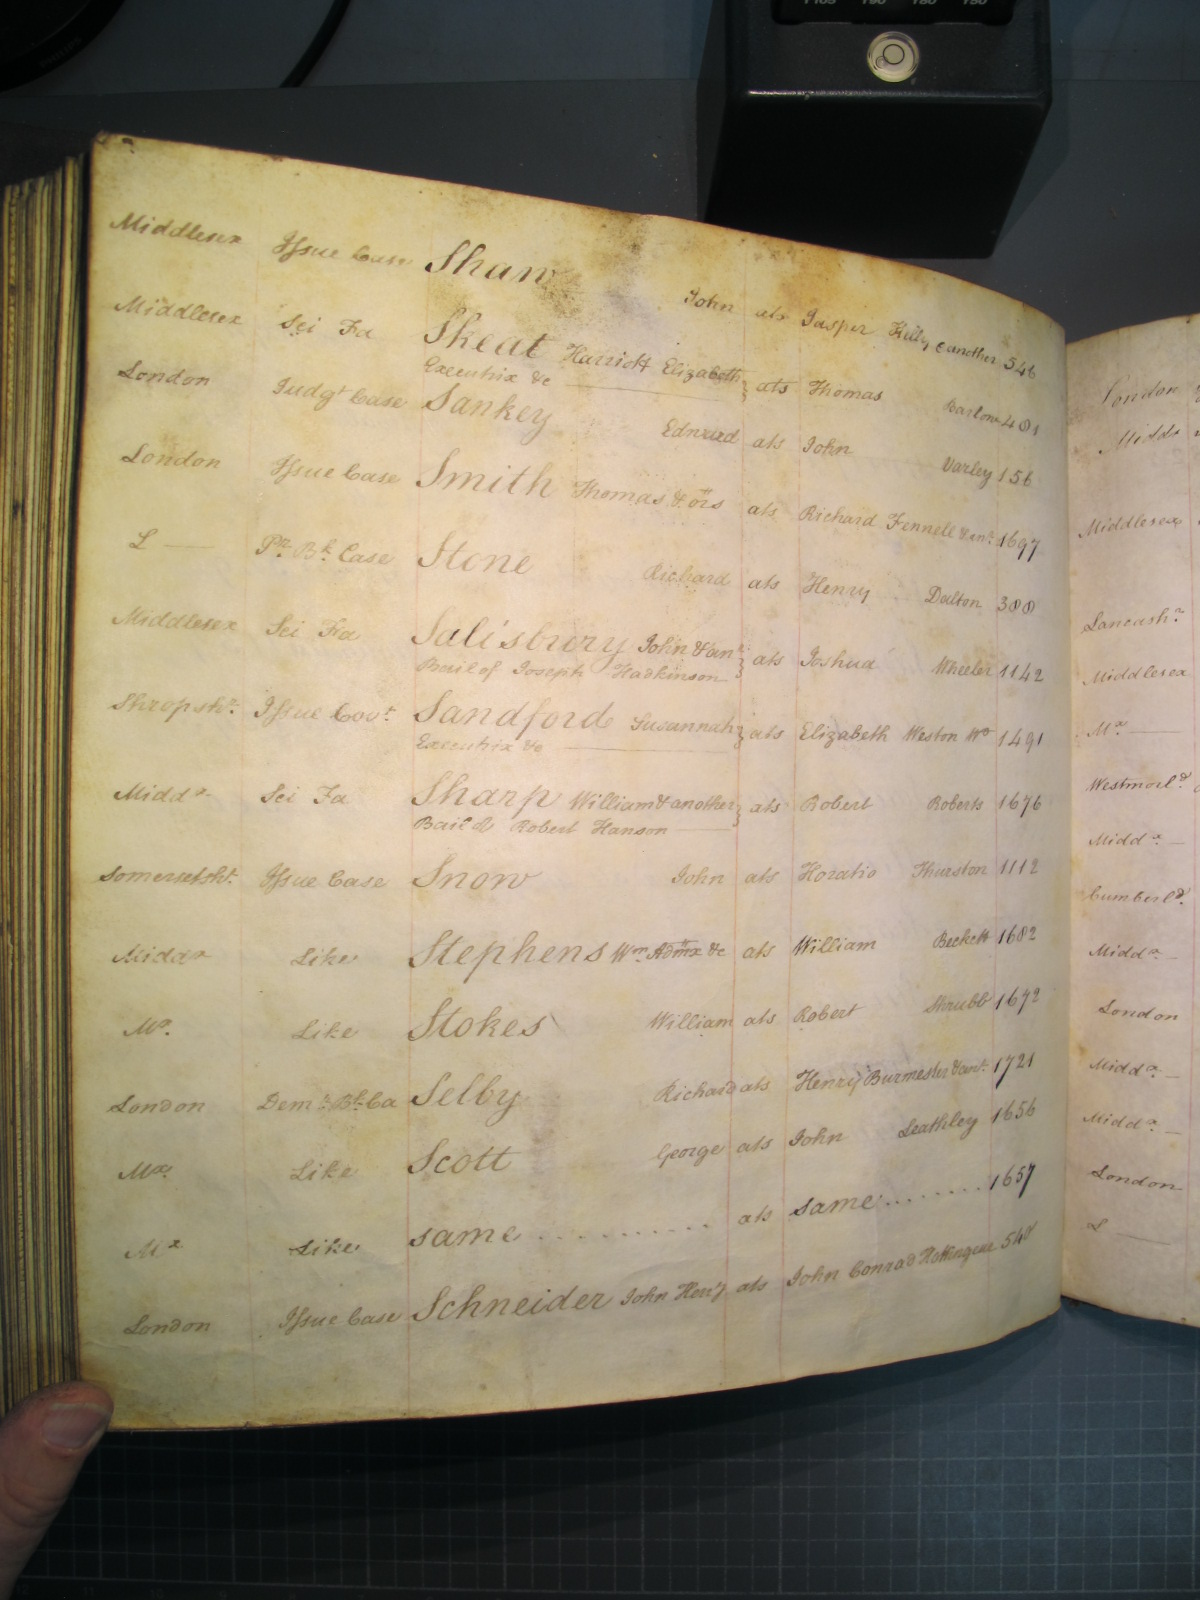 Middlesex Issue Case Shaw John ats Jasper Kelly & another 546
Middlesex Sci Fa Skeat Harriott Elizabeth ats Thomas Barlow 481
Executrix &c
London Judgt Case Sankey Edward ats John Varley 156
London Issue Case Smith Thomas & ors ats Richard Fennell & anr 1697
L — Pn. Bk. Case Stone Richard ats Henry Dalton 388
Middlesex Sci Fa Salisbury John & anr ats Joshua Wheeler 1142
Bail of Joseph Hadkinson
Shropshr. Issue Covt Sandford Susannah ats Elizabeth Weston Wo 1491
Executrix &c
Middx Sci Fa Sharp William & another ats Robert Roberts 1676
Bail of Robert Hanson
Somersetshr. Issue Case Snow John ats Horatio Thurston 1112
Middx Like Stephens Wm. Admx &c ats William Beckett 1682
Mx. Like Stokes William ats Robert Strubb 1672
London Demr. Bk. Ca Selby Richard ats Henry Burmester & anr. 1721
Mx. Like Scott George ats John Leathley 1656
Mx Like same .......... ats same ........ 1657
London Issue Case Schneider John Heny ats John Conrad Hottinguer 548
London
Middx
Middlesex
Lancashr.
Middlesex
Mx —
Westmorld
Middx. —
Cumberld.
Middx. —
London
Middx. —
Middx. —
London
L —